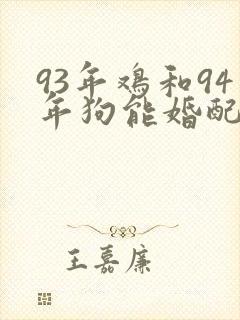 93年鸡和94
年狗能婚配
王嘉廉